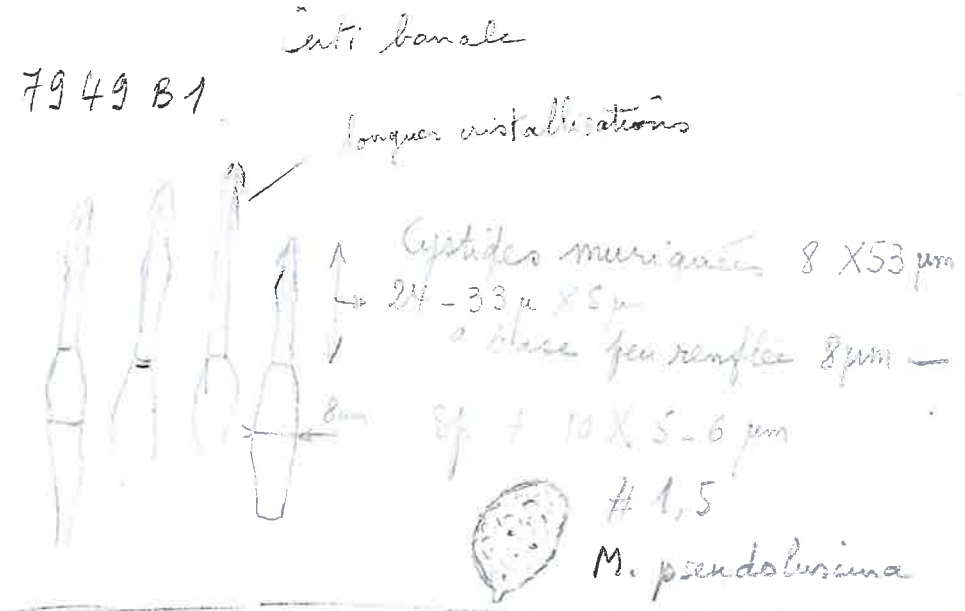 banale
7949 B1
longues cristallisations
Cystides muriquées 8 X 53 µm
24 - 33 µ X 5 µ
peu renflée 8 µm —
8 µm
10 X 5-6 µm
1,5
M. pseudoluscina